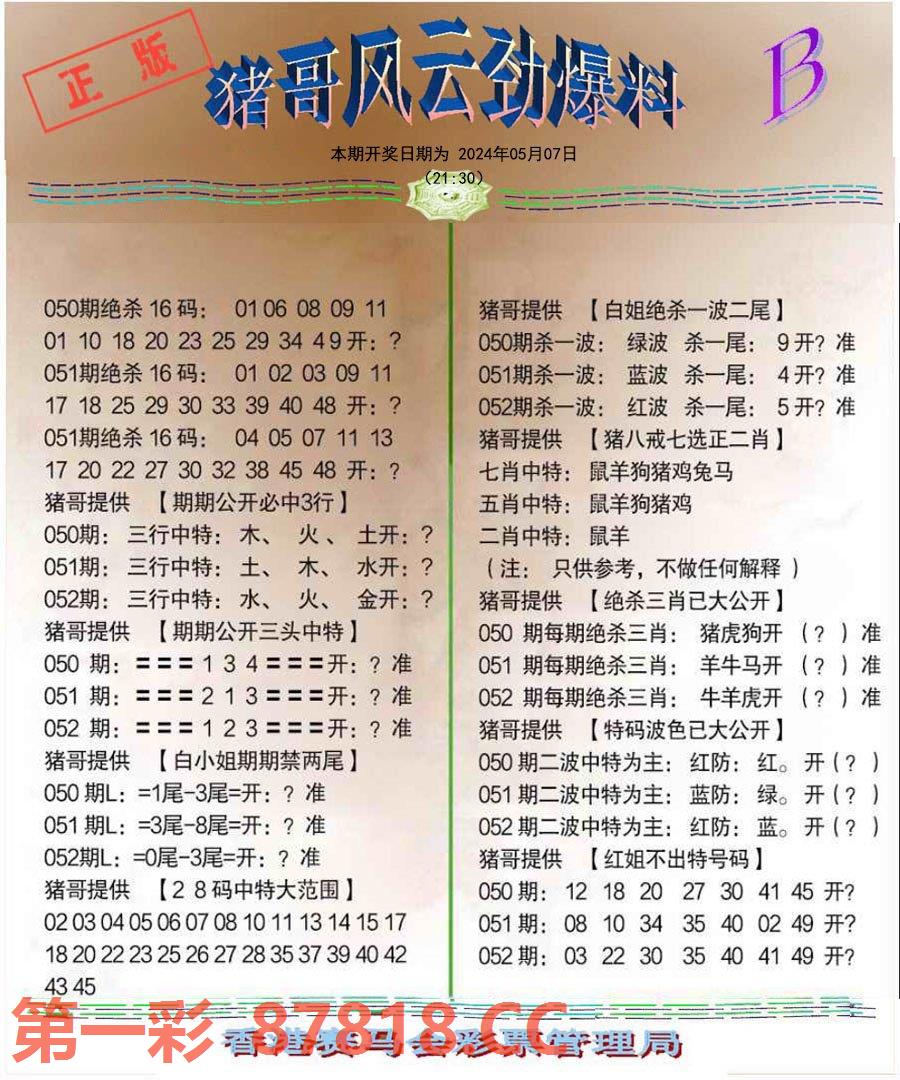 正版
猪哥风云劲爆料
B
本期开奖日期为 2024年05月07日
（21:30）
050期绝杀 16 码： 01 06 08 09 11
01 10 18 20 23 25 29 34 4 9 开：？
051期绝杀 16 码： 01 02 03 09 11
17 18 25 29 30 33 39 40 48 开：？
051期绝杀 16 码： 04 05 07 11 13
17 20 22 27 30 32 38 45 48 开：？
猪哥提供 【期期公开必中3行】
050期： 三行中特： 木、 火 、 土开：？
051期： 三行中特： 土、 木、 水开：？
052期： 三行中特： 水、 火、 金开：？
猪哥提供 【期期公开三头中特】
050 期：〓〓〓 1 3 4 〓〓〓开：？准
051 期：〓〓〓 2 1 3 〓〓〓开：？准
052 期：〓〓〓 1 2 3 〓〓〓开：？准
猪哥提供 【白小姐期期禁两尾】
050 期L：=1尾-3尾=开：？准
051 期L：=3尾-8尾=开：？准
052期L：=0尾-3尾=开：？准
猪哥提供 【2 8 码中特大范围】
02 03 04 05 06 07 08 10 11 13 14 15 17
18 20 22 23 25 26 27 28 35 37 39 40 42
43 45
猪哥提供 【白姐绝杀一波二尾】
050期杀一波： 绿波 杀一尾： 9 开？准
051期杀一波： 蓝波 杀一尾： 4 开？准
052期杀一波： 红波 杀一尾： 5 开？准
猪哥提供 【猪八戒七选正二肖】
七肖中特： 鼠羊狗猪鸡兔马
五肖中特： 鼠羊狗猪鸡
二肖中特： 鼠羊
（注： 只供参考，不做任何解释 ）
猪哥提供 【绝杀三肖已大公开】
050 期每期绝杀三肖： 猪虎狗开 （？）准
051 期每期绝杀三肖： 羊牛马开 （？）准
052 期每期绝杀三肖： 牛羊虎开 （？）准
猪哥提供 【特码波色已大公开】
050 期二波中特为主： 红防： 红。 开（？）
051 期二波中特为主： 蓝防： 绿。 开（？）
052 期二波中特为主： 红防： 蓝。 开（？）
猪哥提供 【红姐不出特号码】
050 期： 12 18 20 27 30 41 45 开？
051 期： 08 10 34 35 40 02 49 开？
052 期： 03 22 30 35 40 41 49 开？
第一彩 87818.CC
香港赛马会彩票管理局